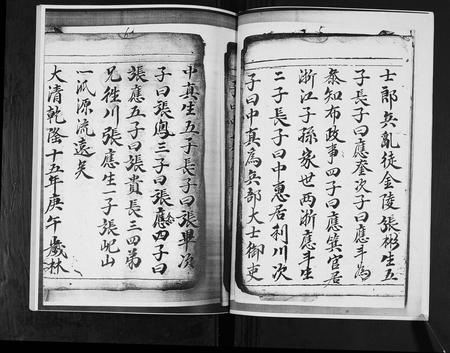 士郎兵亂徙金陵張彬生五
子長子曰應奎次子曰應斗為
叅知布政事四子曰應箕官居
浙江子孫家世两浙應斗生
二子長子曰中惠居利川次
子曰中真為兵部大士御吏
中真生五子長子曰張畢次
子曰張奧三子曰張應四子曰
張應五子曰張貴長三四弟
兄徃川張應生一子張屺山
一派源流遠矣
大清乾隆十五年庚午歲林